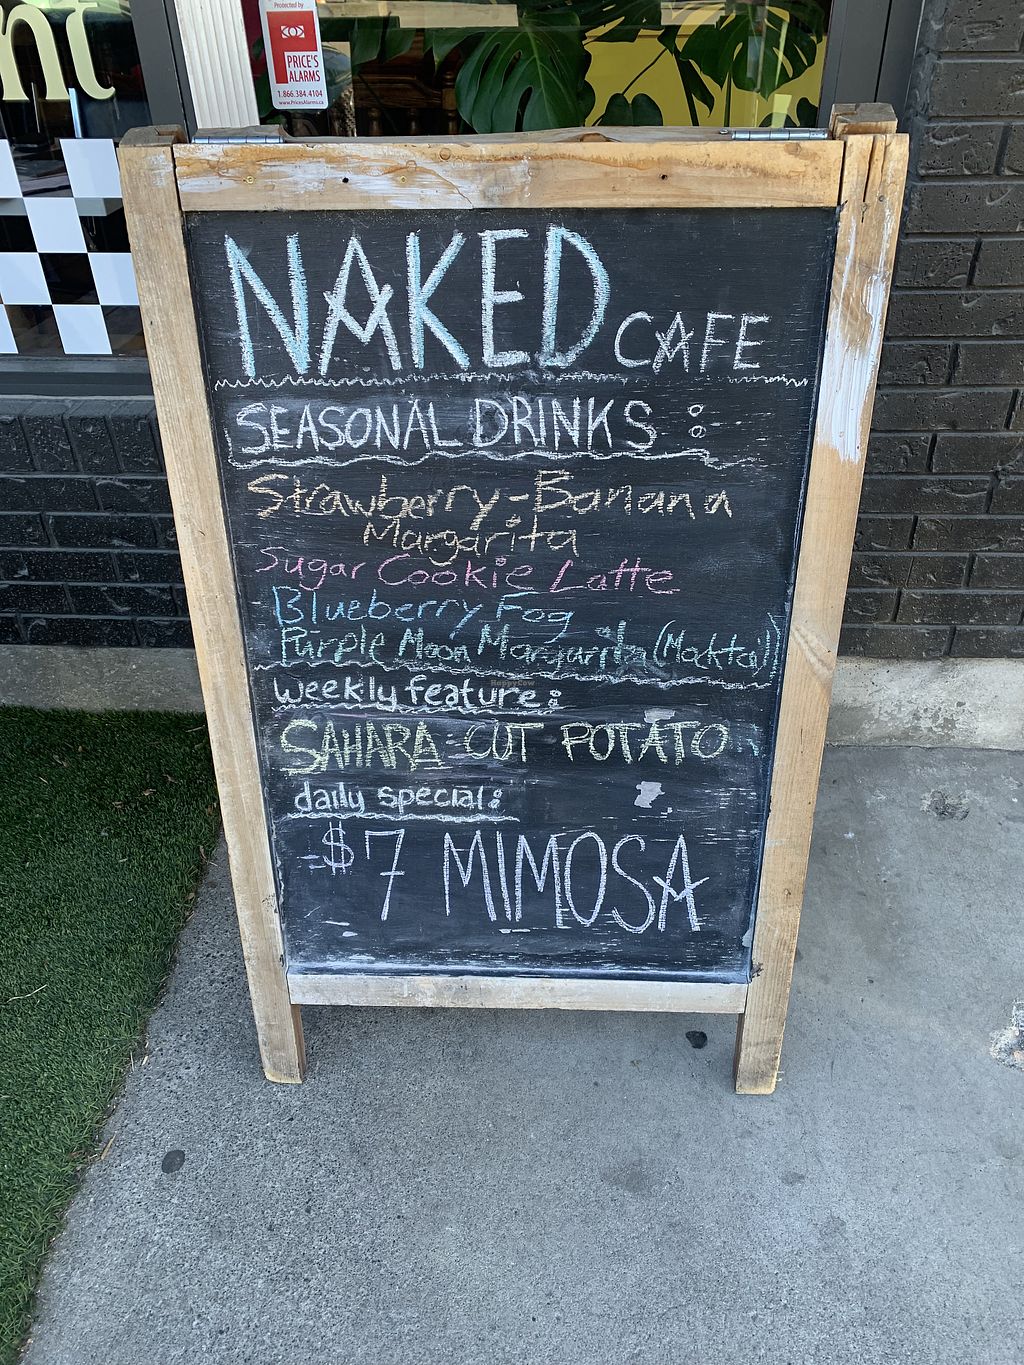 nt
Protected by
PRICE'S
ALARMS
1.866.384.4104
www.PricesAlarms.ca
NAKED CAFE
SEASONAL DRINKS:
Strawberry-Banana
Margarita
Sugar Cookie Latte
Blueberry Fog
Purple Moon Margarita (Mocktail)
HappyCow
weekly feature:
SAHARA CUT POTATO
daily special:
-$7 MIMOSA